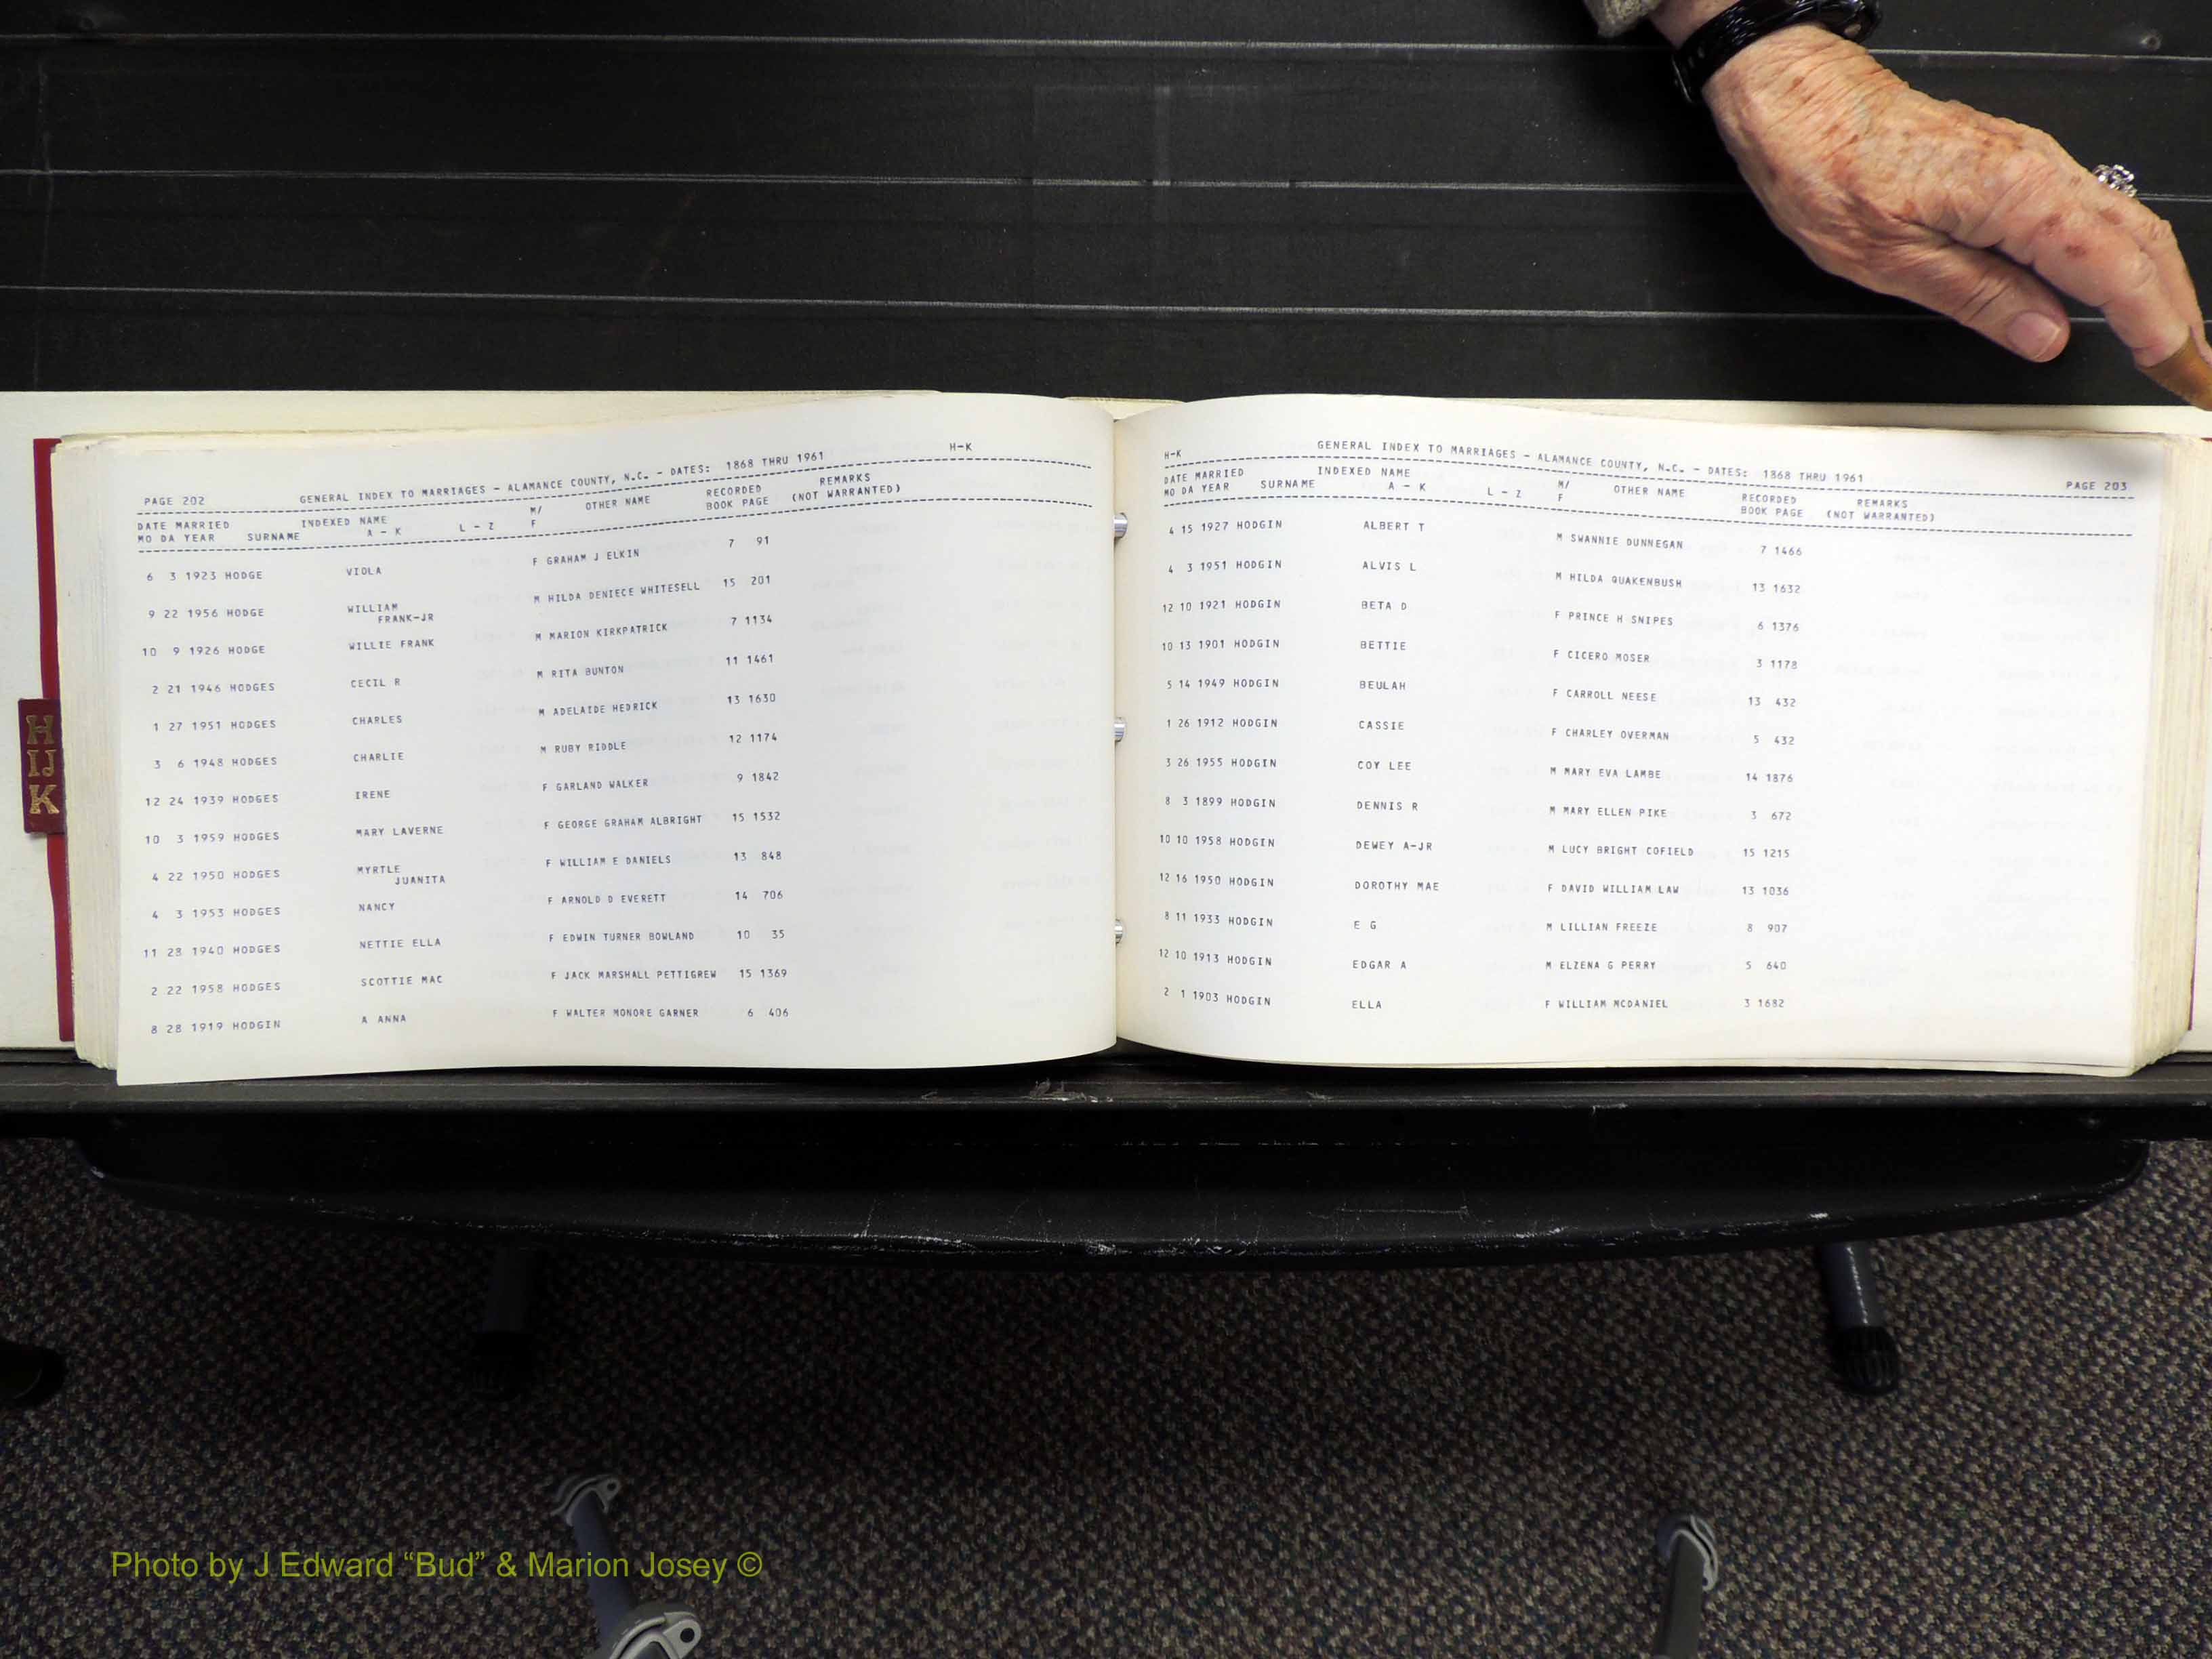 PAGE 202 GENERAL INDEX TO MARRIAGES - ALAMANCE COUNTY, N.C. - DATES: 1868 THRU 1961 H-K
DATE MARRIED INDEXED NAME M/ OTHER NAME RECORDED REMARKS
MO DA YEAR SURNAME A - K L - Z F BOOK PAGE (NOT WARRANTED)
6 3 1923 HODGE VIOLA F GRAHAM J ELKIN 7 91
9 22 1956 HODGE WILLIAM M HILDA DENIECE WHITESELL 15 201
FRANK-JR
10 9 1926 HODGE WILLIE FRANK M MARION KIRKPATRICK 7 1134
2 21 1946 HODGES CECIL R M RITA BUNTON 11 1461
1 27 1951 HODGES CHARLES M ADELAIDE HEDRICK 13 1630
3 6 1948 HODGES CHARLIE M RUBY RIDDLE 12 1174
12 24 1939 HODGES IRENE F GARLAND WALKER 9 1842
10 3 1959 HODGES MARY LAVERNE F GEORGE GRAHAM ALBRIGHT 15 1532
4 22 1950 HODGES MYRTLE F WILLIAM E DANIELS 13 848
JUANITA
4 3 1953 HODGES NANCY F ARNOLD D EVERETT 14 706
11 28 1940 HODGES NETTIE ELLA F EDWIN TURNER BOWLAND 10 35
2 22 1958 HODGES SCOTTIE MAC F JACK MARSHALL PETTIGREW 15 1369
8 28 1919 HODGIN A ANNA F WALTER MONORE GARNER 6 406
H-K GENERAL INDEX TO MARRIAGES - ALAMANCE COUNTY, N.C. - DATES: 1868 THRU 1961 PAGE 203
DATE MARRIED INDEXED NAME M/ OTHER NAME RECORDED REMARKS
MO DA YEAR SURNAME A - K L - Z F BOOK PAGE (NOT WARRANTED)
4 15 1927 HODGIN ALBERT T M SWANNIE DUNNEGAN 7 1466
4 3 1951 HODGIN ALVIS L M HILDA QUAKENBUSH 13 1632
12 10 1921 HODGIN BETA D F PRINCE H SNIPES 6 1376
10 13 1901 HODGIN BETTIE F CICERO MOSER 3 1178
5 14 1949 HODGIN BEULAH F CARROLL NEESE 13 432
1 26 1912 HODGIN CASSIE F CHARLEY OVERMAN 5 432
3 26 1955 HODGIN COY LEE M MARY EVA LAMBE 14 1876
8 3 1899 HODGIN DENNIS R M MARY ELLEN PIKE 3 672
10 10 1958 HODGIN DEWEY A-JR M LUCY BRIGHT COFIELD 15 1215
12 16 1950 HODGIN DOROTHY MAE F DAVID WILLIAM LAW 13 1036
8 11 1933 HODGIN E G M LILLIAN FREEZE 8 907
12 10 1913 HODGIN EDGAR A M ELZENA G PERRY 5 640
2 1 1903 HODGIN ELLA F WILLIAM MCDANIEL 3 1682
H
IJ
K
Photo by J Edward “Bud” & Marion Josey ©